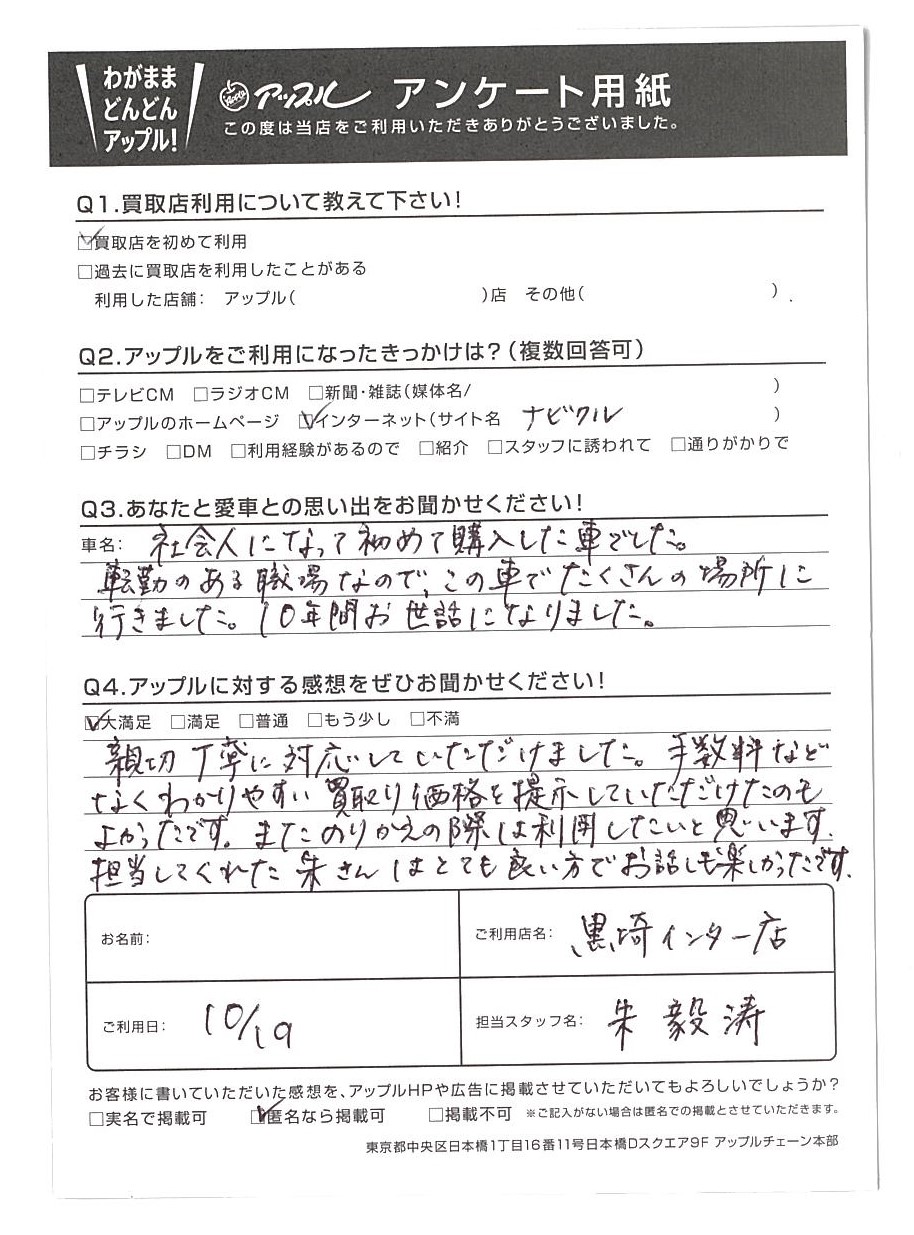 わがまま
どんどん
アップル!
アップル アンケート用紙
この度は当店をご利用いただきありがとうございました。
Q1.買取店利用について教えて下さい!
☑買取店を初めて利用
□過去に買取店を利用したことがある
利用した店舗: アップル( )店 その他( )
Q2.アップルをご利用になったきっかけは?(複数回答可)
□テレビCM □ラジオCM □新聞・雑誌(媒体名/ )
□アップルのホームページ ☑インターネット(サイト名 ナビクル )
□チラシ □DM □利用経験があるので □紹介 □スタッフに誘われて □通りがかりで
Q3.あなたと愛車との思い出をお聞かせください!
車名: 社会人になって初めて購入した車でした。
転勤のある職場なので、この車でたくさんの場所に
行きました。10年間お世話になりました。
Q4.アップルに対する感想をぜひお聞かせください!
☑大満足 □満足 □普通 □もう少し □不満
親切丁寧に対応していただけました。手数料など
なくわかりやすい買取り価格を提示していただけたのも
よかったです。またのりかえの際は利用したいと思います.
担当してくれた朱さんはとても良い方でお話しも楽しかったです.
お名前:
ご利用店名: 黒埼インター店
ご利用日: 10/19
担当スタッフ名: 朱 毅涛
お客様に書いていただいた感想を、アップルHPや広告に掲載させていただいてもよろしいでしょうか?
□実名で掲載可 ☑匿名なら掲載可 □掲載不可 ※ご記入がない場合は匿名での掲載とさせていただきます。
東京都中央区日本橋1丁目16番11号日本橋Dスクエア9F アップルチェーン本部